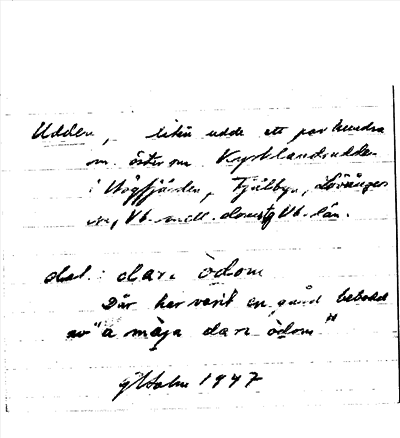 Udden, liten udde ett par hundra
m. öster om Kyrklandsudden
i Högfjärden, Fjälbyn, Lövångers
sn, Vb. mell. domsg Vb. län.
dal. : dari òdom
Där har varit en gård bebodd
av "a màja dari òdom"
1947